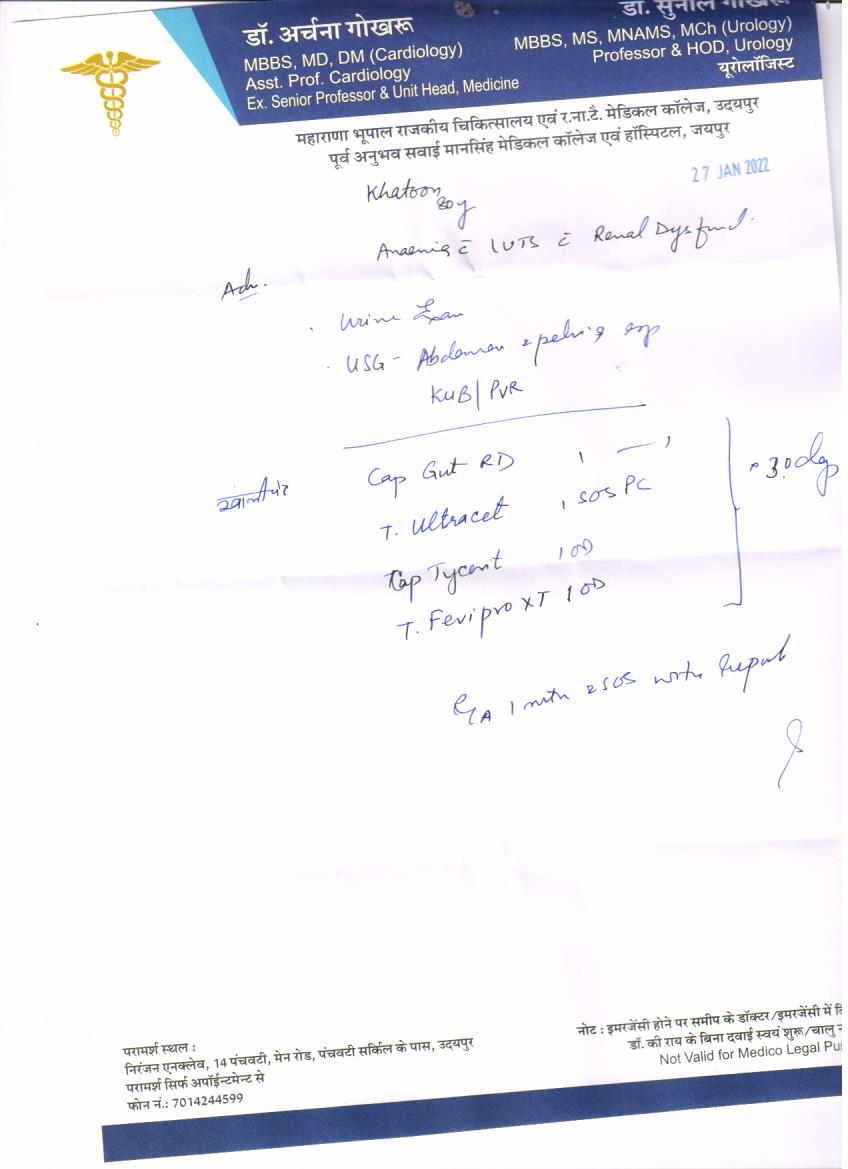 डॉ. अर्चना गोखरू
MBBS, MD, DM (Cardiology)
Asst. Prof. Cardiology
Ex. Senior Professor & Unit Head, Medicine
डॉ. सुनील गोखरू
MBBS, MS, MNAMS, MCh (Urology)
Professor & HOD, Urology
यूरोलॉजिस्ट
महाराणा भूपाल राजकीय चिकित्सालय एवं र.ना.टै. मेडिकल कॉलेज, उदयपुर
पूर्व अनुभव सवाई मानसिंह मेडिकल कॉलेज एवं हॉस्पिटल, जयपुर
27 JAN 2022
Khatoon
80y
Anaemia c̄ LUTS c̄ Renal Dysfunct.
Adv.
Urine Exam
USG - Abdomen & pelvis
KUB/PVR
खालीपेट
Cap Gut RD 1 — 1
T. Ultracet 1 SOS PC
Cap Tycent 1 OD
T. Fevipro XT 1 OD
1 mth & SOS with Report
परामर्श स्थल :
निरंजन एनक्लेव, 14 पंचवटी, मेन रोड, पंचवटी सर्किल के पास, उदयपुर
परामर्श सिर्फ अपॉईन्टमेन्ट से
फोन नं.: 7014244599
नोट : इमरजेंसी होने पर समीप के डॉक्टर/इमरजेंसी में
डॉ. की राय के बिना दवाई स्वयं शुरू/चालु
Not Valid for Medico Legal Pu